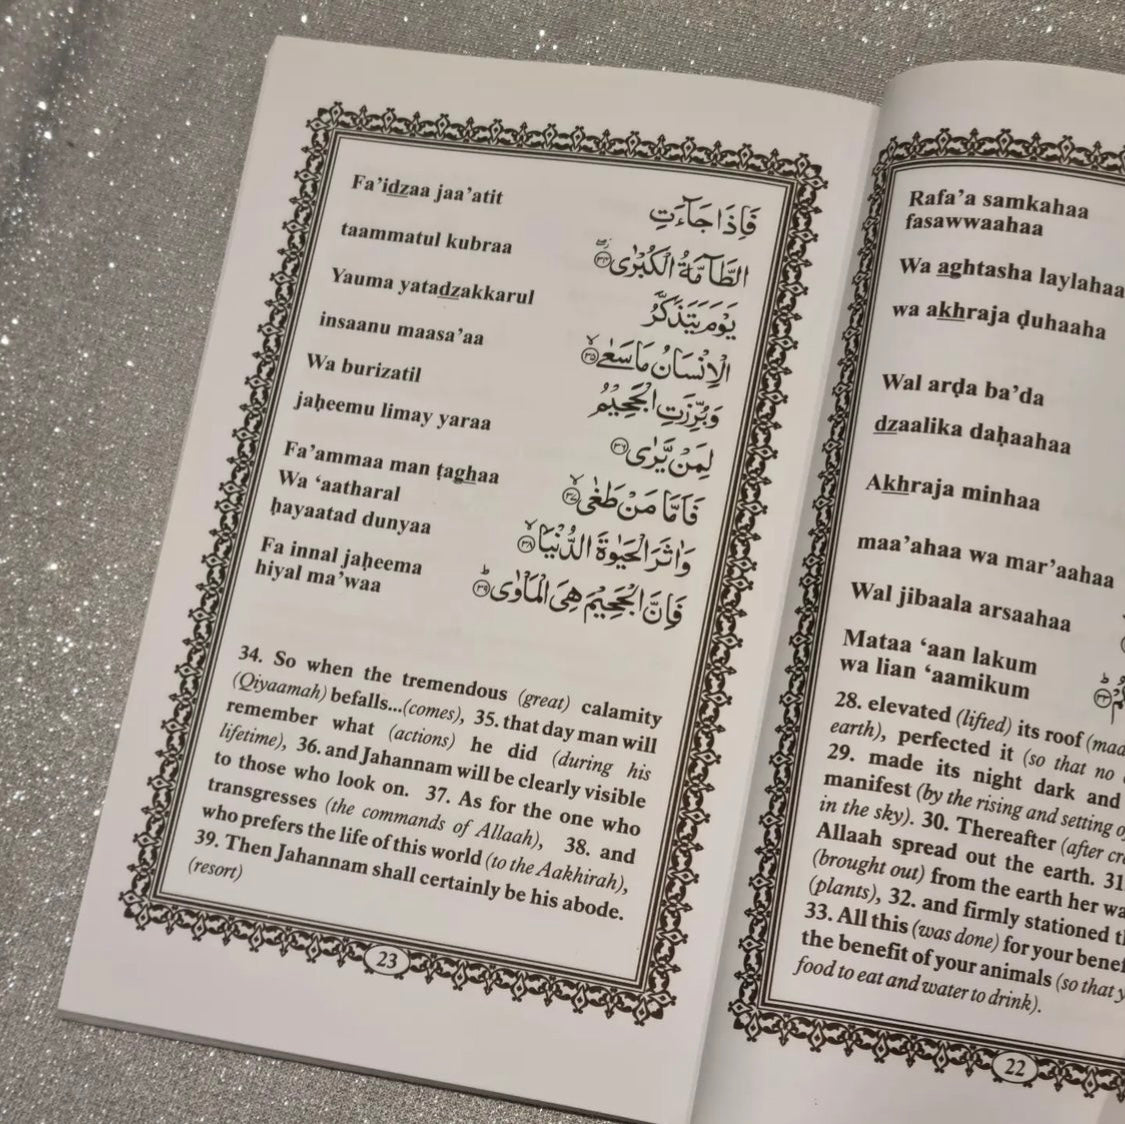 Fa'idzaa jaa'atit
فَاِذَا جَآءَتِ
taammatul kubraa
الطَّآمَّةُ الْكُبْرٰى ۳۴
Yauma yatadzakkarul
يَوْمَ يَتَذَكَّرُ
insaanu maasa'aa
الْاِنْسَانُ مَا سَعٰى ۳۵
Wa burizatil
وَبُرِّزَتِ الْجَحِيْمُ
jaḥeemu limay yaraa
لِمَنْ يَّرٰى ۳۶
Fa'ammaa man ṭaghaa
فَاَمَّا مَنْ طَغٰى ۳۷
Wa ‘aatharal
ḥayaatad dunyaa
وَاٰثَرَ الْحَيٰوةَ الدُّنْيَا ۳۸
Fa innal jaḥeema
hiyal ma'waa
فَاِنَّ الْجَحِيْمَ هِيَ الْمَاْوٰى ۳۹
34. So when the tremendous (great) calamity
(Qiyaamah) befalls...(comes), 35. that day man will
remember what (actions) he did (during his
lifetime), 36. and Jahannam will be clearly visible
to those who look on. 37. As for the one who
transgresses (the commands of Allaah), 38. and
who prefers the life of this world (to the Aakhirah),
39. Then Jahannam shall certainly be his abode.
(resort)
23
Rafa'a samkahaa
fasawwaahaa
Wa aghtasha laylahaa
wa akhraja ḍuhaaha
Wal arḍa ba'da
dzaalika daḥaahaa
Akhraja minhaa
maa'ahaa wa mar'aahaa
Wal jibaala arsaahaa
Mataa ‘aan lakum
wa lian ‘aamikum
28. elevated (lifted) its roof
earth), perfected it (so that no
29. made its night dark and
manifest (by the rising and setting
in the sky). 30. Thereafter (after
Allaah spread out the earth. 31
(brought out) from the earth her
(plants), 32. and firmly stationed
33. All this (was done) for your
the benefit of your animals (so that
food to eat and water to drink).
22